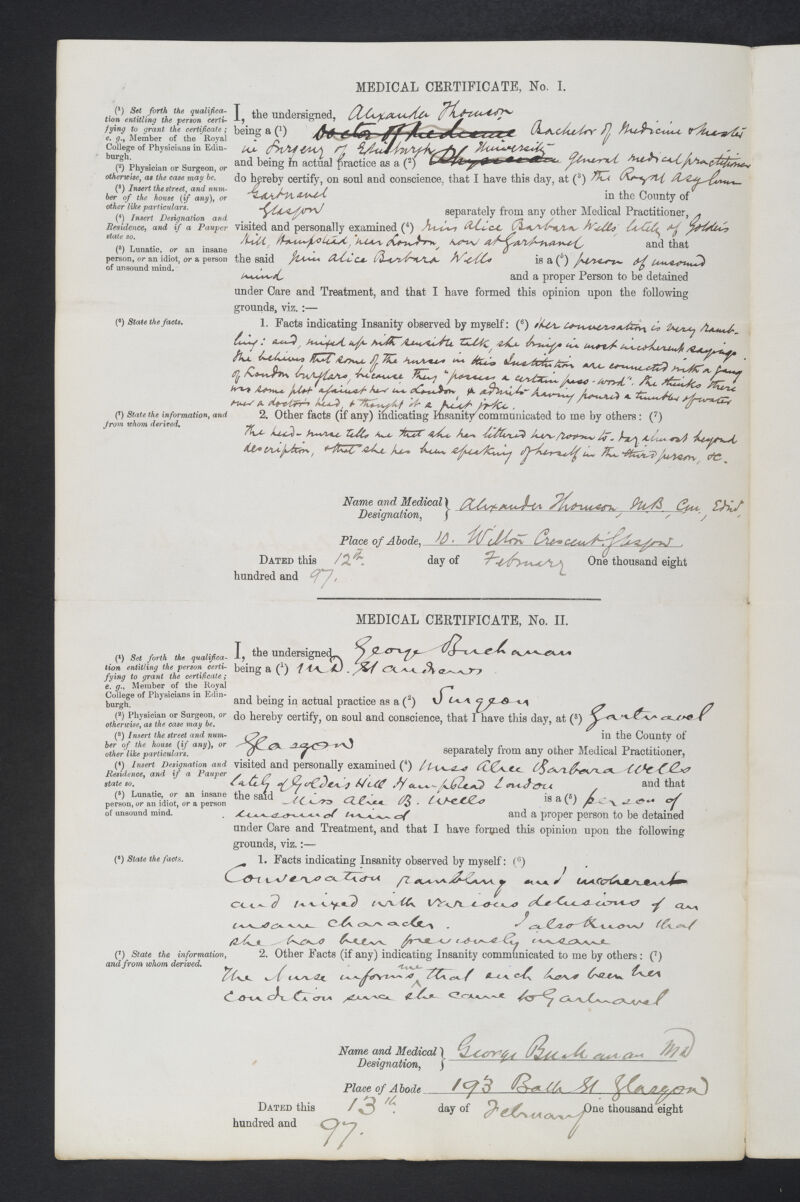 MEDICAL CERTIFICATE, No. I.
(¹) Set forth the qualifica-
tion entitling the person certi-
fying to grant the certificate;
e. g., Member of the Royal
College of Physicians in Edin-
burgh.
(²) Physician or Surgeon, or
otherwise, as the case may be.
(³) Insert the street, and num-
ber of the house (if any), or
other like particulars.
(⁴) Insert Designation and
Residence, and if a Pauper
state so.
(⁵) Lunatic, or an insane
person, or an idiot, or a person
of unsound mind.
I, the undersigned, Alexander Thomson
being a (¹) Doctor of Medicine Bachelor of Medicine & Master
in Surgery of Edinburgh University
and being in actual practice as a (²) Physician general medical practitioner
do hereby certify, on soul and conscience, that I have this day, at (³) the Royal Asylum
Gartnavel in the County of
Glasgow separately from any other Medical Practitioner,
visited and personally examined (⁴) Miss Alice Barbara Wells, lately of Golders
Hill, Hampstead, near London, now at Gartnavel and that
the said Miss Alice Barbara Wells is a (⁵) person of unsound
mind and a proper Person to be detained
under Care and Treatment, and that I have formed this opinion upon the following
grounds, viz. :—
(⁶) State the facts.
1. Facts indicating Insanity observed by myself: (⁶) Her conversation is very ramb-
ling: and, mixed up with sensible talk, she brings in most incoherent sayings.
She believes that some of the nurses in this Institution are connected with a gang
of London burglars, because they "possess a certain pass-word". She thinks there
was some plot against her in London, & admits having poured a tumbler of water
over a doctor's head, & thought it a great joke.
(⁷) State the information, and
from whom derived.
2. Other facts (if any) indicating Insanity communicated to me by others: (⁷)
The head-nurse tells me that she has littered her room to-day almost beyond
description, & that she has been speaking of herself in the third person, &c.
Name and Medical
Designation, Alexander Thomson, M.B., C.M., Edin.
Place of Abode, 10. Wilton Crescent. Glasgow.
DATED this 12th. day of February One thousand eight
hundred and 97.
MEDICAL CERTIFICATE, No. II.
(¹) Set forth the qualifica-
tion entitling the person certi-
fying to grant the certificate;
e. g., Member of the Royal
College of Physicians in Edin-
burgh.
(²) Physician or Surgeon, or
otherwise, as the case may be.
(³) Insert the street and num-
ber of the house (if any), or
other like particulars.
(⁴) Insert Designation and
Residence, and if a Pauper
state so.
(⁵) Lunatic, or an insane
person, or an idiot, or a person
of unsound mind.
I, the undersigned, George Buchanan
being a (¹) M.D. St andrews
and being in actual practice as a (²) Surgeon
do hereby certify, on soul and conscience, that I have this day, at (³) Gartnavel
in the County of
Glasgow separately from any other Medical Practitioner,
visited and personally examined (⁴) Miss Alice Barbara Wells
lately of Golders Hill Hampstead London and that
the said Miss Alice B. Wells is a (⁵) person of
unsound mind and a proper person to be detained
under Care and Treatment, and that I have formed this opinion upon the following
grounds, viz. :—
(⁶) State the facts.
1. Facts indicating Insanity observed by myself: (⁶)
Conversation rambling and incoherent
and mixed with various delusions of an
insane character. I also know that
she has been previously insane
(⁷) State the information,
and from whom derived.
2. Other Facts (if any) indicating Insanity communicated to me by others: (⁷)
The Nurse informs me that such has been her
condition since she came to Gartnavel
Name and Medical
Designation, George Buchanan MD
Place of Abode 193 Bath St Glasgow
DATED this 13th. day of February One thousand eight
hundred and 97.